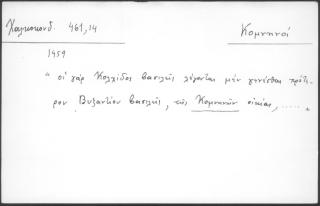 Χαλκοκονδ. 461,14
Κομνηνοί
1459
" οἱ γὰρ Κολχίδος βασιλῆς λέγονται μὲν γενέσθαι πρότε-
ρον Βυζαντίου βασιλῆς, τῆς Κομνηνῶν οἰκίας, ..... "